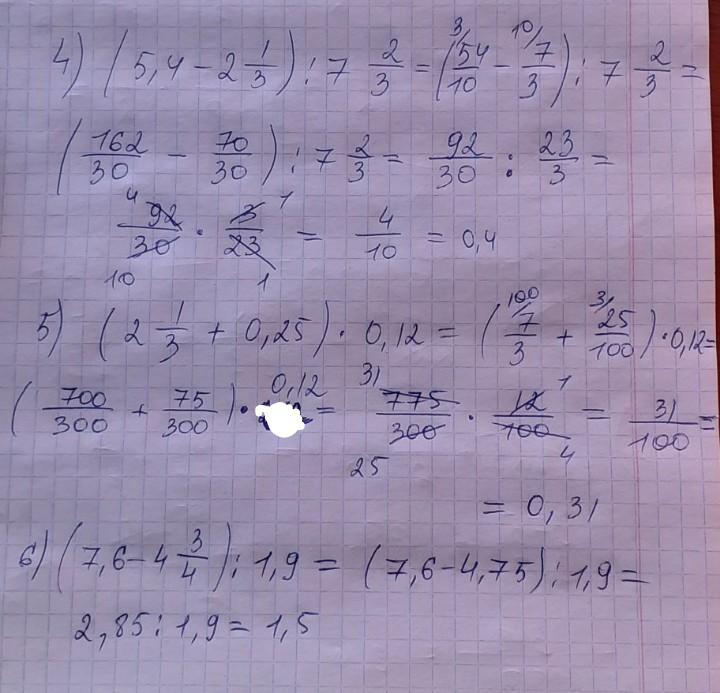 4) (5,4 - 2 1/3) : 7 2/3 = (3/ 54/10 - 10/ 7/3) : 7 2/3 =
(162/30 - 70/30) : 7 2/3 = 92/30 : 23/3 =
4 92/30 10 · 3/23 1 1 = 4/10 = 0,4
5) (2 1/3 + 0,25) · 0,12 = (100/ 7/3 + 3/ 25/100) · 0,12 =
(700/300 + 75/300) · 0,12 = 31 775/300 25 · 12/100 1 4 = 31/100 =
= 0,31
6) (7,6 - 4 3/4) : 1,9 = (7,6 - 4,75) : 1,9 =
2,85 : 1,9 = 1,5